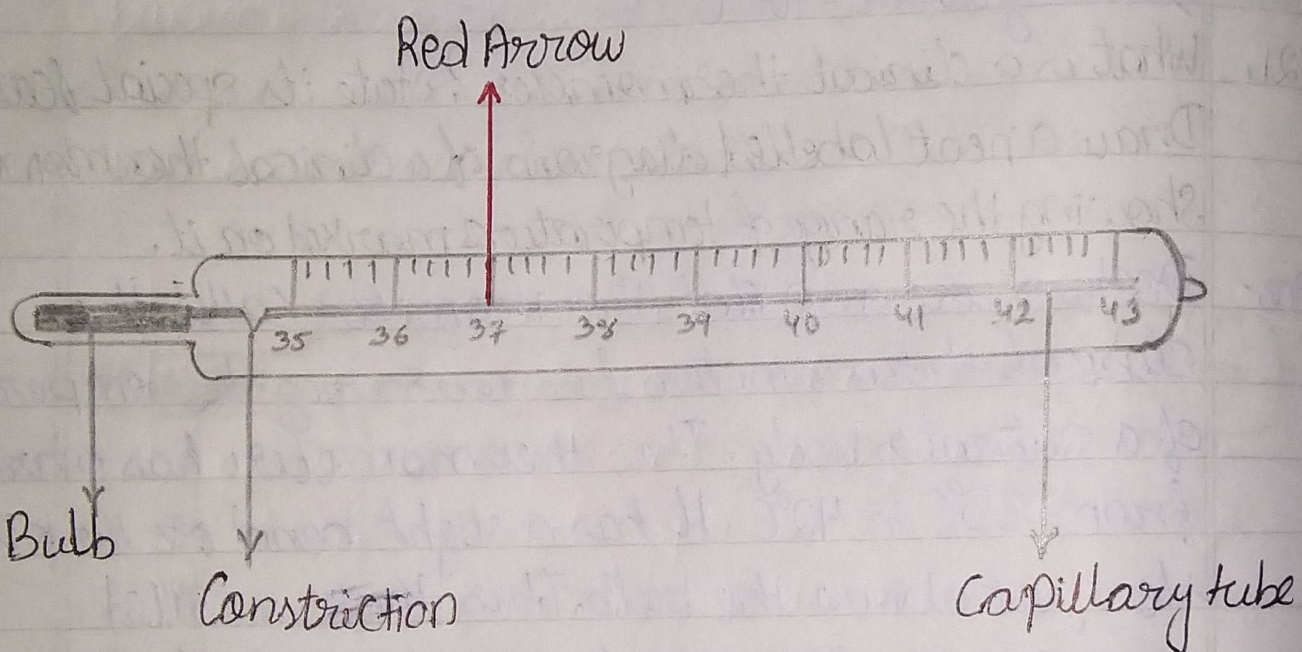 Red Arrow
35 36 37 38 39 40 41 42 43
Bulb
Constriction
Capillary tube